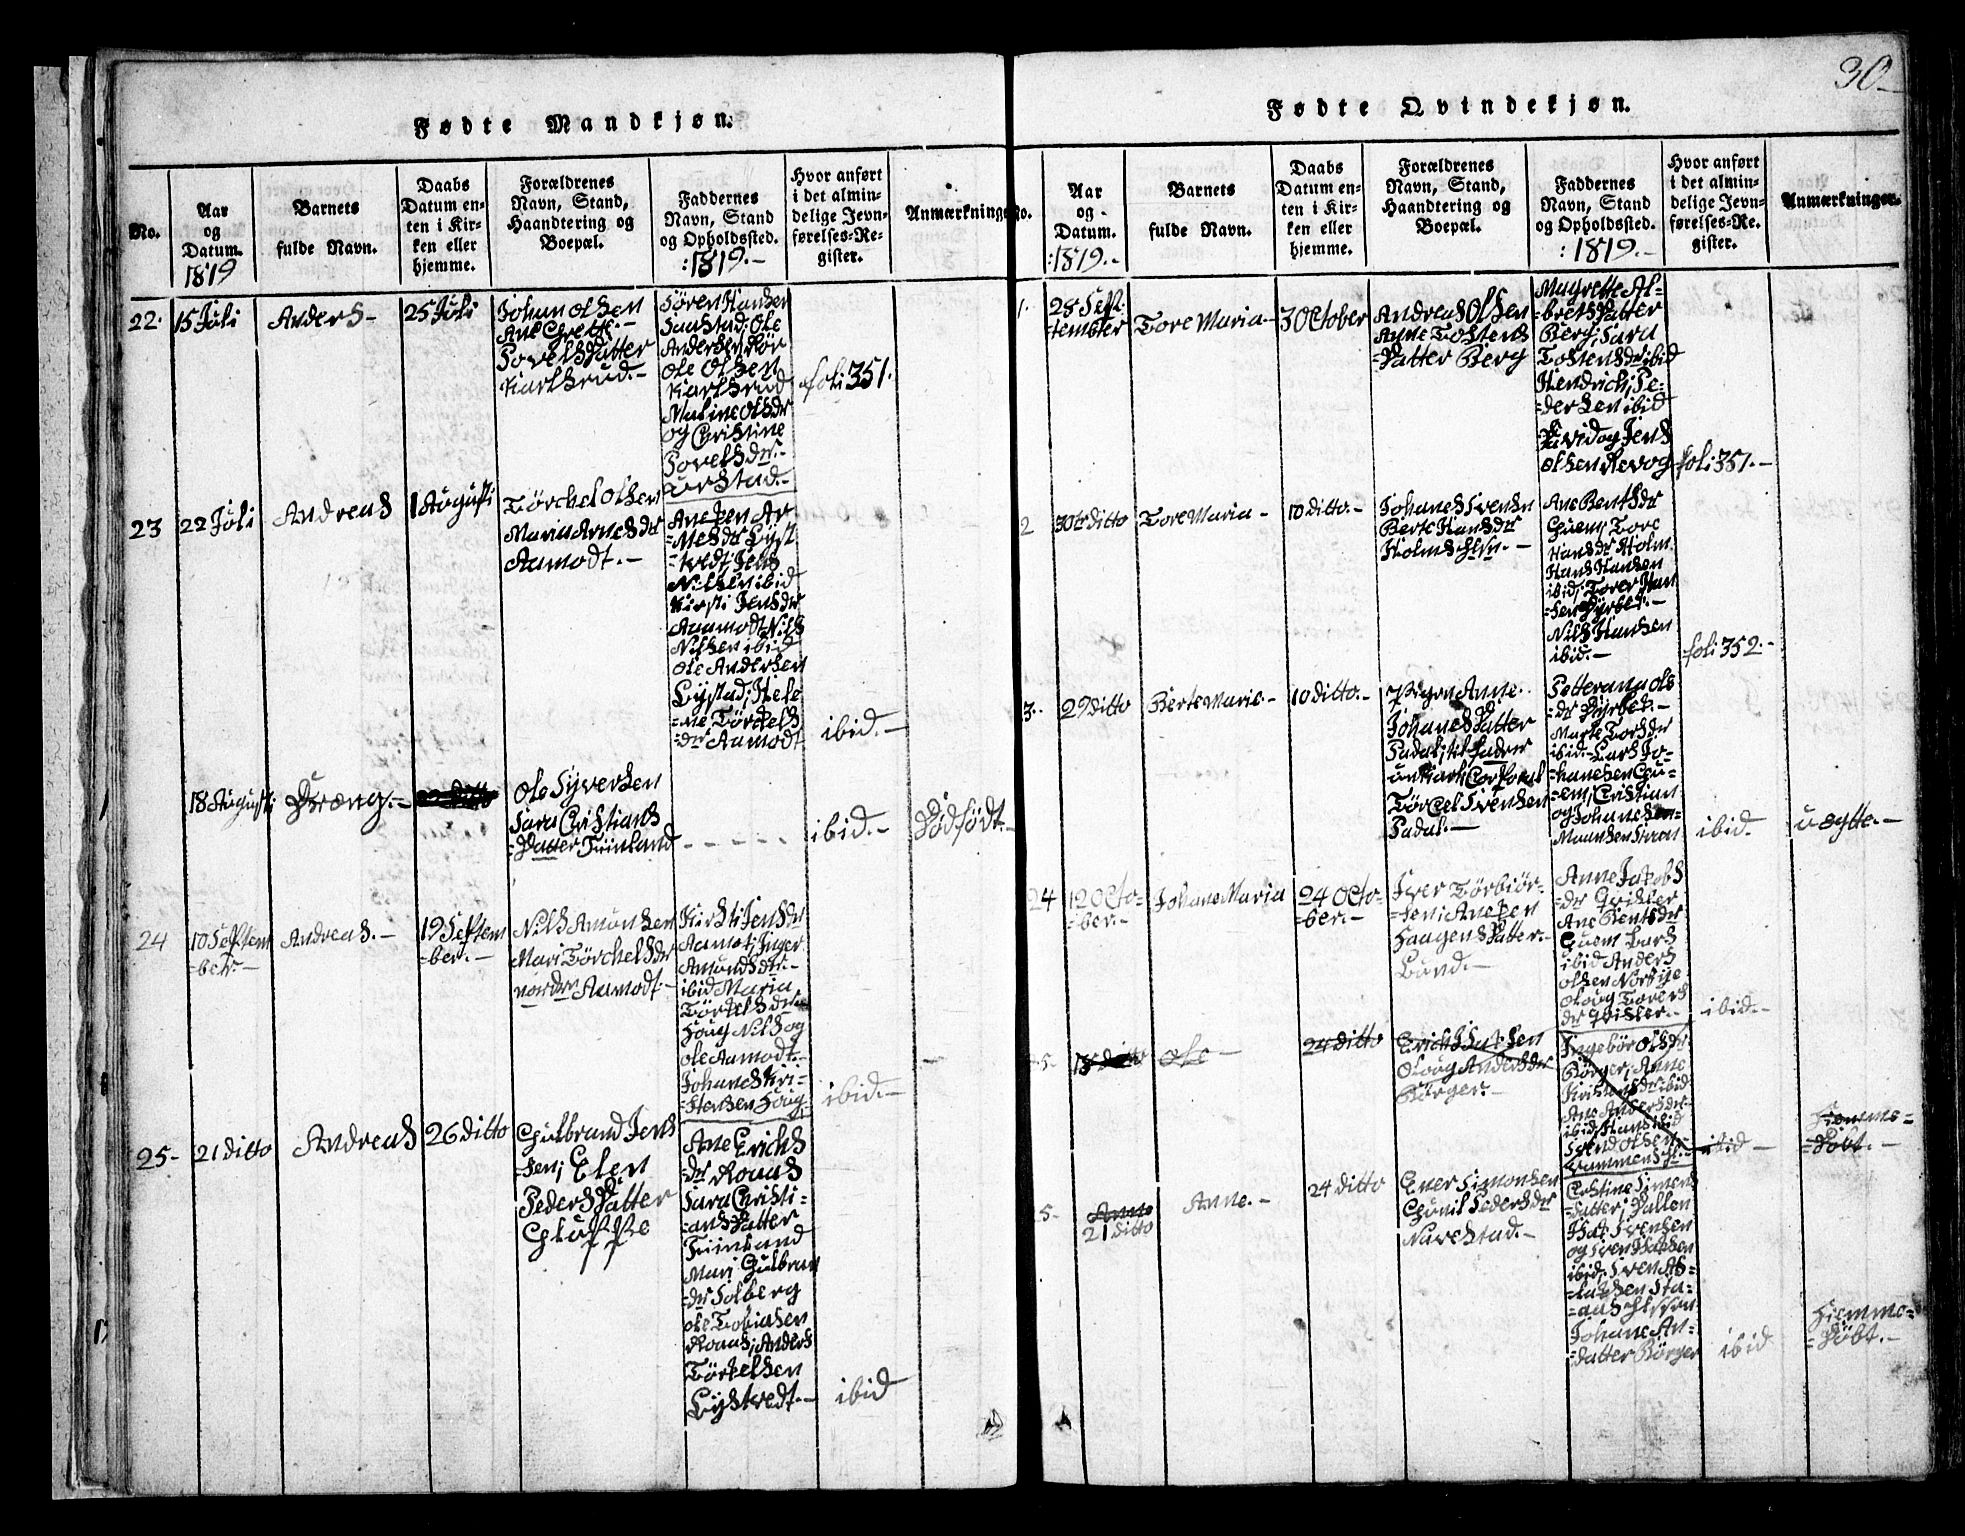 30
Fødte Mandkjøn.
No.
Aar
og
Datum.
1819
Barnets
fulde Navn.
Daabs
Datum en-
ten i Kir-
ken eller
hjemme.
Forældrenes
Navn, Stand,
Haandtering og
Boepæl.
Faddernes
Navn, Stand
og Opholdssted.
:1819.-
Hvor anført
i det almin-
delige Jevn-
førelses-Re-
gister.
Anmærkninger
22.
15 Juli
Anders-
25 Juli
Johan Olsen
Ane Grette.-
Povels Datter
Karlsrud.-
Sören Hansen
Saastad; Ole
Andersen Rör
Ole Olsen
Karlsrud
Maline Olsdr
og Christine
Povelsdr.-
foli 351.
23
22 Juli
Andreas
1 Augusti
Törchel Olsen
Maria Arnesdr
Aamodt.-
Nilsen ibid
Kirsti Jensdr
Aamodt Nils
Nilsen ibid
Ole Andersen
Lystad; Hele
=ne Törchels
=dr Aamodt
ibid.-
18 Augusti
Dræng.-
Ole Syversen
Sara Cristians
=Datter Fiinland
ibid.-
Dödfödt.-
24
10 Septem
=ber.-
Andreas.-
19 Septem
=ber.-
Nils Amunsen
Mari Törchelsdr
nordre Aamodt-
Kirsti Jensdr
Aamot; Inger
Amundsdr.-
ibid Maria
Törkelsdr
Houg Nils og
Ole Aamodt.-
Johanes Kri-
=stensen Houg
ibid.-
25-
21 ditto
Andreas
26 ditto
Gulbrand Jens
=sen; Elen
Peders Datter
Ane Erichs
=dr Roaas
Sara Christi-
=ans Datter
Fiinland
Mari Gulbran
=dr Solberg
Ole Tobiasen
Roaas; Anders
Törkelsen
Lystvedt.-
ibid
Fødte Qvindekjøn.
No.
Aar
og
Datum.
:1819.-
Barnets
fulde Navn.
Daabs
Datum en-
ten i Kir-
ken eller
hjemme.
Forældrenes
Navn, Stand,
Haandtering og
Boepæl.
Faddernes
Navn, Stand
og Opholdssted.
:1819.-
Hvor anført
i det almin-
delige Jevn-
førelses-Re-
gister.
Anmærkninger.
1.
28 Sep-
=tember
Tore Maria-
3 October
Andreas Olsen
Anne Tostens
=Datter Berg
Magrette Al-
=brets Datter
Berg; Sara
Tostensdr ibid
Hendrich Pe-
=dersen ibid
og Jens
Olsen Revog
foli 351.-
2
ditto
Tore Maria-
10 ditto.-
Johanes Svensen
Berte Hansdr
Ane Bentsdr
Guem Tore
Hansdr Holm
Hans Hansen
ibid; Torer Han
=sen Dyrbek.-
Nils Hansen
ibid.-
foli 352.-
3.
29 ditto
Berte Marie-
10 ditto.-
Pigen Anne
Johanes Datter
Padal; til fader
Corporal
Törcel Svensen
Padal.-
Petterana Ols
=dr Dyrbek.-
Marte Torsdr
ibid.- Lars Jo-
=hanesen Gu-
=em; Cristian
og Johanes
ibid.
uægte.-
24
12 Octo-
=ber.-
Johane Maria
24 Octo-
=ber.-
Iver Törbiör-
=sen; Ane
Haagens Datter.-
Lund.-
Anne Jakobs
=dr Qvisler
Ane Bentsdr
Guem Lars
ibid Anders
Olsen Norbye
Oloug Torers
dr Qvisler.-
ibid.-
5-
ditto
Ole-
24 ditto
Oloug Andersdr
Börger.-
Ingebör Olsdr
Börger; Anne
ibid
Ane Andersdr
ibid; Hans ibid
Svend Olsen
ibid-
Hiemme-
=Döbt.-
5-
Anne
21 ditto
Anne.-
24 ditto
Ener Simonsen
Gunil Pedersdr
Navestad.-
Cristine Simens
=Datter; Pallen
Isak Svensen
og Sven Isaksen
ibid; Sven As-
Johane An-
=Datter Börger
ibid
Hiemme-
=Döbt.-